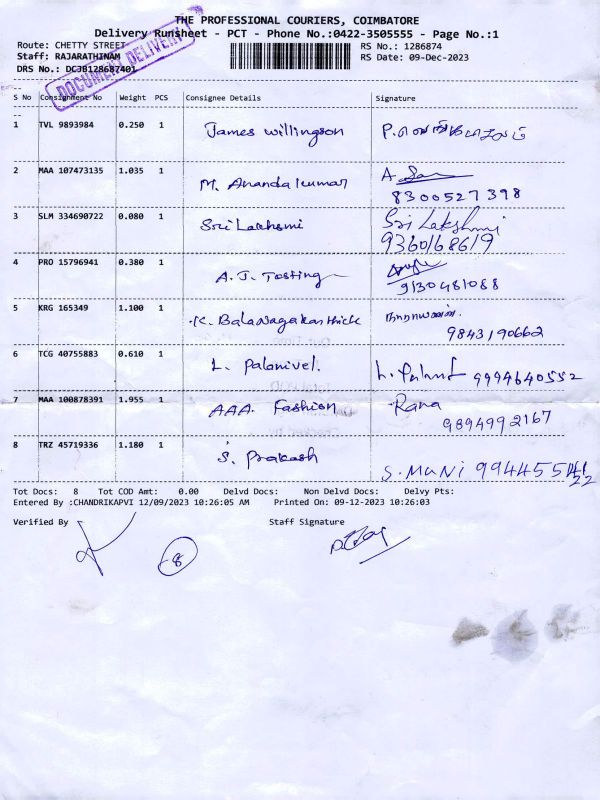 THE PROFESSIONAL COURIERS, COIMBATORE
Delivery Runsheet - PCT - Phone No.:0422-3505555 - Page No.:1
Route: CHETTY STREET RS No.: 1286874
Staff: RAJARATHINAM RS Date: 09-Dec-2023
DRS No.: DCJB128687401
DOCUMENT DELIVERY
S No Consignment No Weight PCS Consignee Details Signature
1 TVL 9893984 0.250 1 James Willingson
2 MAA 107473135 1.035 1 M. Anandakumar A
8300527398
3 SLM 334690722 0.080 1 Sri Lakshmi Sri Lakshmi
9360168619
4 PRO 15796941 0.380 1 A.J. Tosting
9130481088
5 KRG 165349 1.100 1 K. BalaNagakarthick நாராயணன்.
9843190662
6 TCG 40755883 0.610 1 L. Palanivel. 9994640552
7 MAA 100878391 1.955 1 AAA. Fashion Rana
9894992167
8 TRZ 45719336 1.180 1 S. Prakash S. MUNI
Tot Docs: 8 Tot COD Amt: 0.00 Delvd Docs: Non Delvd Docs: Delvy Pts:
Entered By :CHANDRIKAPVI 12/09/2023 10:26:05 AM Printed On: 09-12-2023 10:26:03
Verified By Staff Signature
8